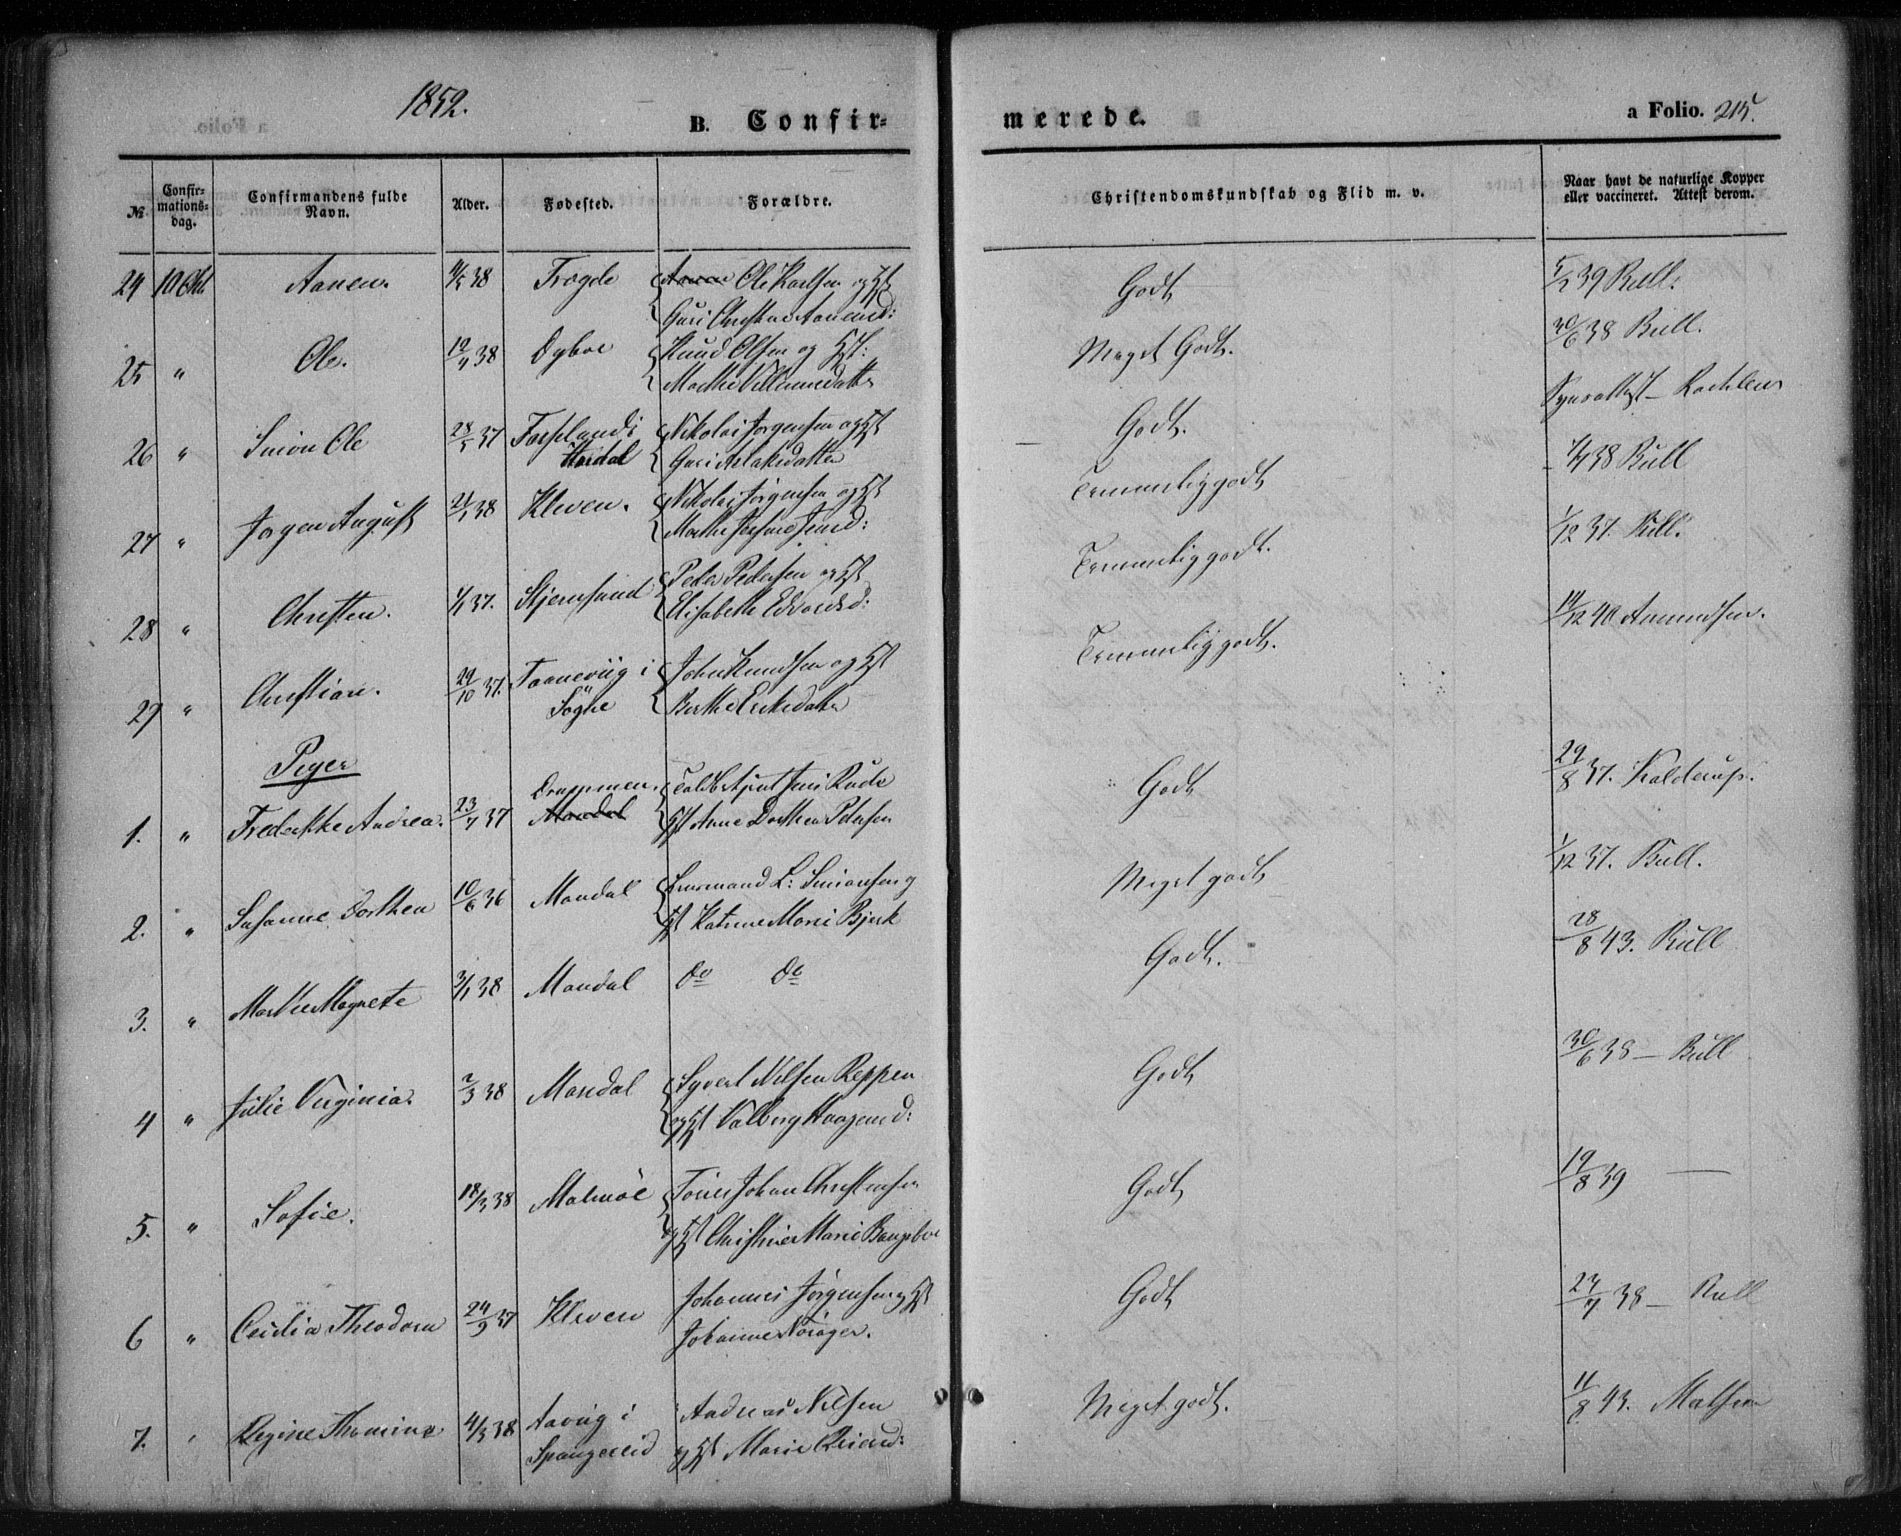 1852.
B. Confirmerede.
a Folio. 215.
№ Confirmationsdag. Confirmandens fulde Navn. Alder. Fødested. Forældre. Christendomskundskab og Flid m. v. Naar havt de naturlige Kopper eller vaccineret. Attest derom.
24 10 Okt. Aanen. 38 Trogde Aanen Ole Karlsen og Hst Guri Aanensd: Godt 39 Bull.
25 " Ole. 38 Knud Olsen og Hst: Marthe Godt. Meget Godt. 30/6 38 Bull.
26 " Simon Ole 28/5 37 i Nikolai Jørgensen og Hst Guri Aslaksdatter Godt. Synsattest
27 " Jørgen August 21/1 38 Kleven. Nikolai Jørgensen og Hst Marthe Temmeliggodt 38 Bull
28 " Christen. 37. Stjernsund Peder Pedersen og Hst Elisabeth Edvardsd: Temmeliggodt. 1/12 37. Bull.
29 " Christian. 29/10 37. Taanevig i Søgne John Knudsen og Hst Berthe Eriksdatter Temmeliggodt. 19/12 40 Aanundsen.
Piger
1. " Frederikke Andrea. 23/7 37 Drammen. Mandal Jens Rude Hst Anne Dorthea Petersen Godt 29/8 37. Kolderup.
2. " Susanne Dorthea 10/6 36 Mandal Lensmand L: Simonsen og Hst Katrine Marie Bjerk Meget godt 1/12 37. Bull.
3. " Marthe Magrete 3/1 38 Mandal Do Do Godt. 28/8 43. Bull
4 " Julie Virginia. 2/3 38 Mandal Syvert Nilsen Reppen og Hst Valborg Haagensd: Godt 30/6 38 — Bull
5. " Sofie. 18/3 38 Malmöe Johan Christensen og Hst Christine Marie Godt 19/8 39 —
6 " Cecilia Theodora 24/9 37 Kleven Johannes Jörgensen og Hst Johanne Nörager. Godt 27/7 38 — Bull
7. " Regine Thomine 4/3 38 Aavig i Spangereid Andreas Nilsen og Hst Marie Reiersd: Meget godt. 11/8 43. Madsen